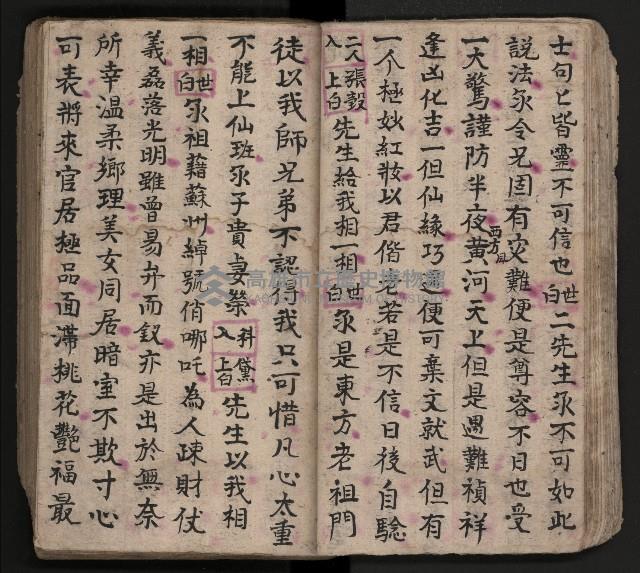 士句匕皆灵不可信也世白二先生尔不可如此
說法尔令兄固有灾難便是尊容不日也受
一大驚謹防半夜黄河天上但是遇難禎祥
西方風
逢凶化吉一但仙緣巧便可棄文就武但有
一个極妙紅妝以君偕老若是不信日後自驗
二人張穀入上白先生給我相一相世白尔是東方老祖門
徒以我師兄弟不認得我只可惜凡心太重
不能上仙班尔子貴妻榮料黛入上白先生以我相
一相世白尔祖藉蘇州綽號俏哪吒為人疎財仗
義磊落光明雖曾易弁而釵亦是出於無奈
所幸温柔鄉理美女同居暗室不欺寸心
可表將來官居極品面滯桃花艷福最
高雄市立歷史博物館
KAOHSIUNG MUSEUM OF HISTORY